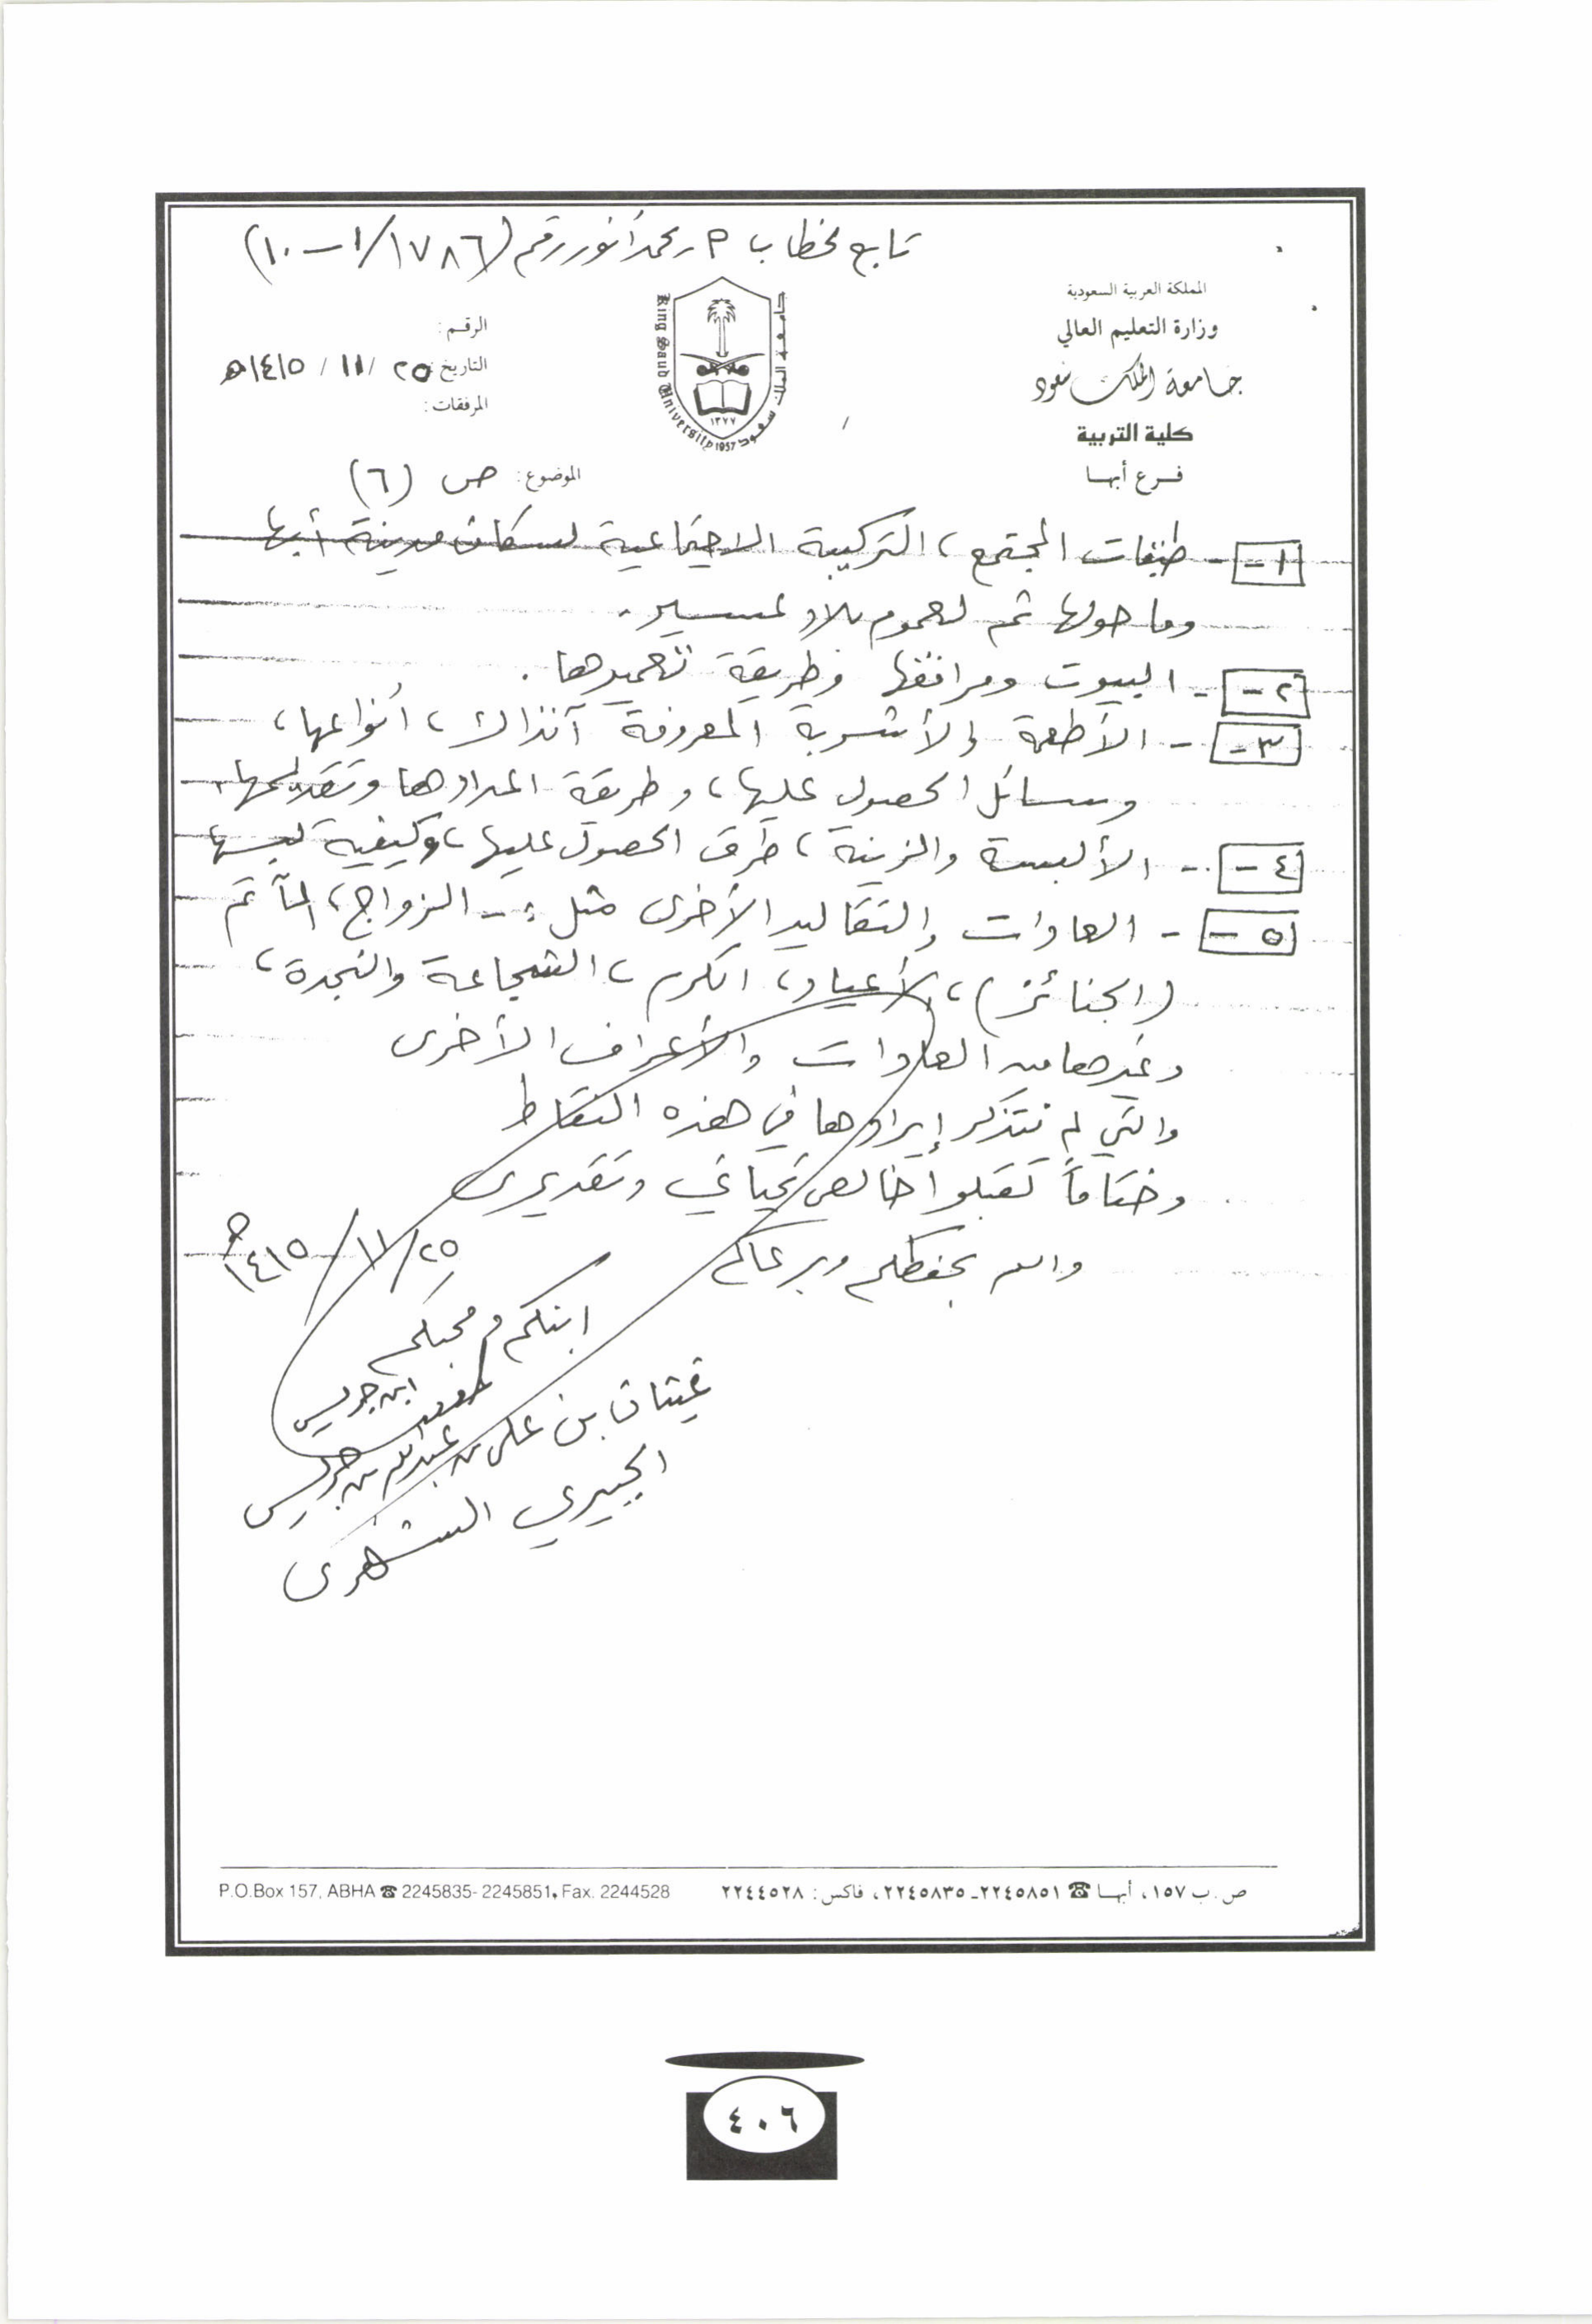 تابع لخطاب م ر محمد أنور رقم (١٧٨٦/١-١٠)
المملكة العربية السعودية
وزارة التعليم العالي
جامعة الملك سعود
كلية التربية
فرع أبها
King Saud University 1957
جامعة الملك سعود
١٣٧٧
الرقم:
التاريخ: ٢٥ / ١١ / ١٤١٥هـ
المرفقات:
الموضوع: ص (٦)
١- - طبقات المجتمع، التركيبة الاجتماعية لسكان مدينة أبها
وما حولها ثم لعموم بلاد عسير.
٢- - البيوت ومرافقها وطريقة تعميرها.
٣- - الأطعمة والأشربة المعروفة آنذاك، أنواعها،
وسائل الحصول عليها، وطريقة إعدادها وتقديمها.
٤- - الألبسة والزينة، طرق الحصول عليها، وكيفية لبسها
٥- - العادات والتقاليد الأخرى مثل :- الزواج، المآتم
(الجنائز)، الأعياد، الكرم، الشجاعة والنجدة،
وغيرها من العادات والأعراف الأخرى
والتي لم نتذكر إيرادها في هذه النقاط
وختاماً تقبلوا خالص تحياتي وتقديري
والله يحفظكم ويرعاكم
٢٥/١١/١٤١٥هـ
ابنكم ومحبكم
ابن جريس
غيثان بن علي بن عبدالله بن جريس
الجبيري الشهري
P.O.Box 157, ABHA ☎ 2245835- 2245851, Fax. 2244528
ص.ب ١٥٧، أبها ☎ ٢٢٤٥٨٥١ـ٢٢٤٥٨٣٥، فاكس: ٢٢٤٤٥٢٨
٤٠٦